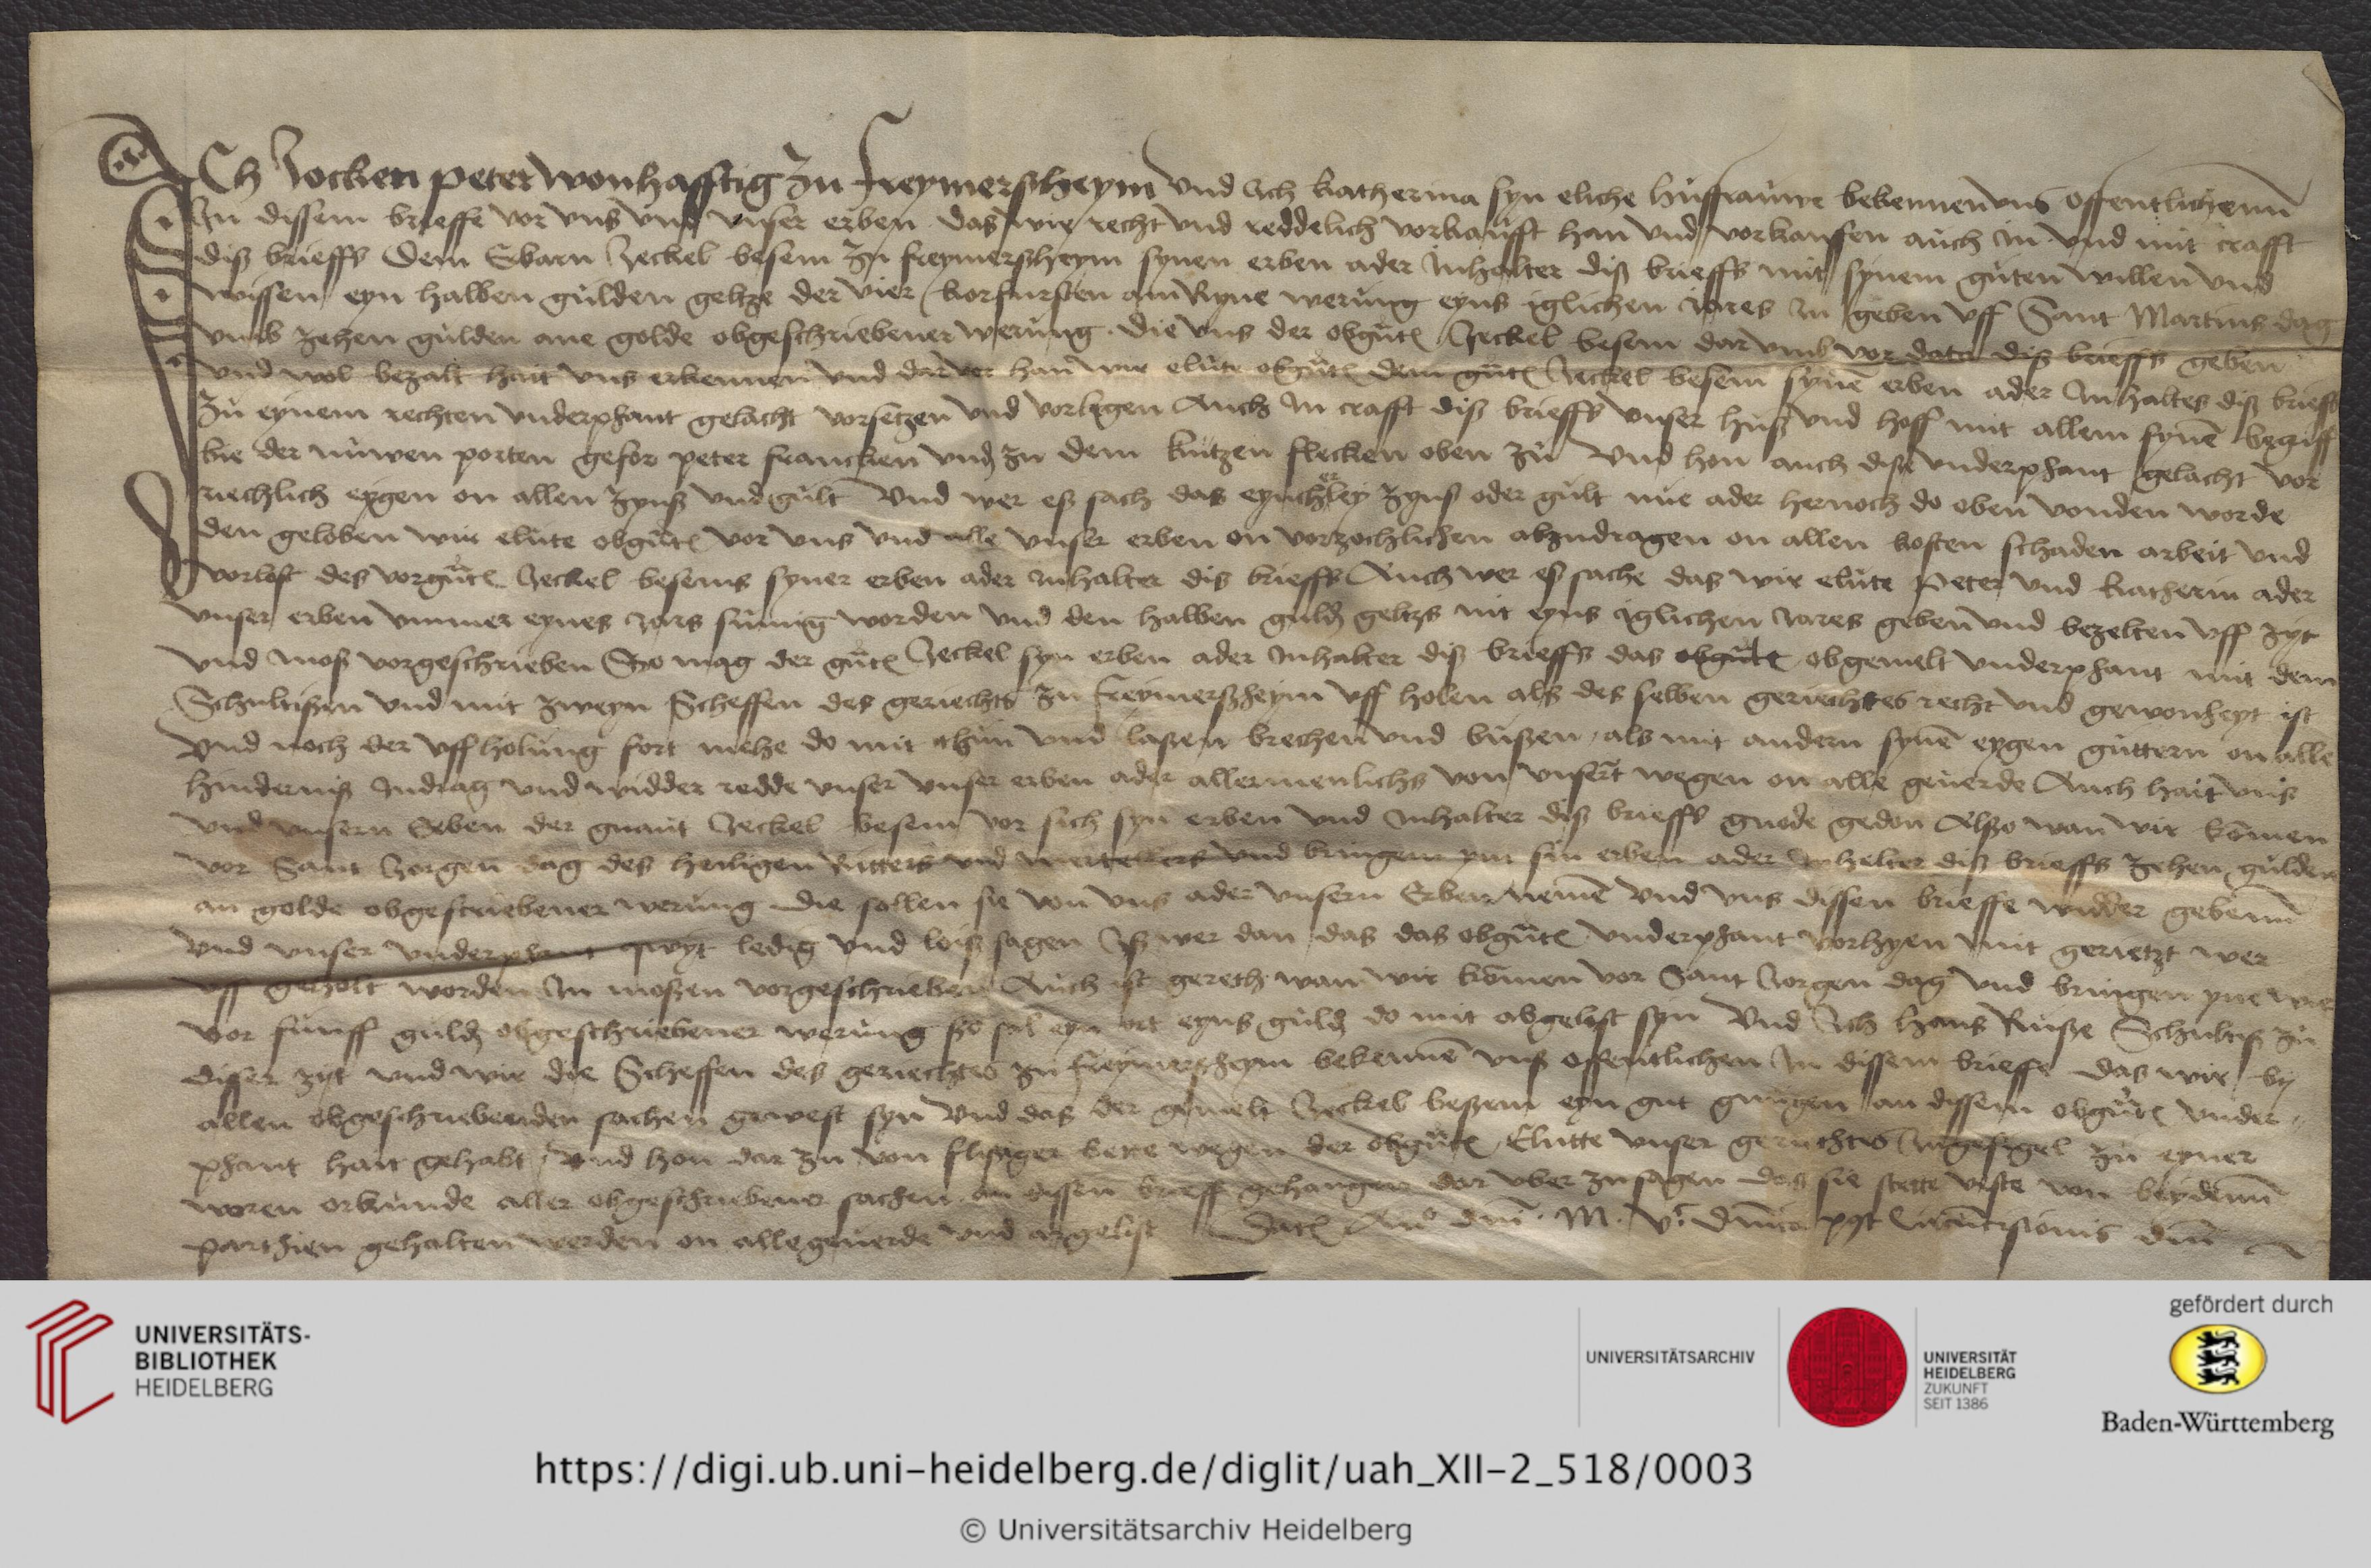 Ich Jocken peter wonhafftig zu freymerßheym und Ich katherina syn eliche hußfrauwe bekennen uns offentlichenn
In dissem brieffe vor uns und unser erben das wir recht und reddelich vorkaufft han und vorkauffen auch in und mit crafft
diß brieffs dem Ebarn Jeckel besem zu freymerßheym synen erben ader Inhalter diß brieffs mit synem guten willen und
wissen eyn halben gulden geltze der vier korfursten am Ryne werung eyns iglichen jares zu geben uff Sant Martins dag
umb zehen gulden ane golde obgeschriebener werung die uns der obgntē Jeckel besem dar umb vor data diß brieffs geben
und wol bezalt hait uns erkennen und dar vor han wir elute obgntē dem gntē Jeckel besem synē erben ader Inhaltes diß brieffs
zu eynem rechten underphant gelacht vorsetzen und vorligen Auch in crafft diß brieffs unser huß und hoff mit allem synē begriff
bie der nuwen porten gefor peter francken und zu dem kutzen flecken oben zu Und hon auch diß underphant gelacht vor
riechlich eygen on allen zynß und gult Und wer eß sach das eyncherley zynß oder gult nue ader hernoch do oben vonden worde
den geloben wir elute obgntē vor uns und alle unser erben on vorzochlichen abzudragen on allen kosten schaden arbeit und
vorlost des vorgntē Jeckel besems syner erben ader Inhalter dis brieffs Auch wer eß sache das wir elute Peter und katherin ader
unser erben ummer eynes jors sumig worden und den halben guldē geltzs nit eyns iglichen jares geben und bezelten uff zyt
und moß vorgeschrieben Szo mag der gntē Jeckel syn erben ader Inhalter diß brieffs das obgntē obgemelt underphant mit dem
Schultißen und mit zweyn Scheffen des geriechts zu freymerßheym uff holen als des selben geriechtes recht und gewonheyt ist
Und noch der uffholung fort mehe do mit thun und laßen brechen und bußen als mit andern synē eygen guttern on alle
hinderniß Indrag und widder redde unser unser erben ader allermenlichs von unsert wegen on alle geuerde Auch hait uns
und unsern Erben der gnant Jeckel besem vor sich syn erben und Inhalter diß brieffs gnode gedon Alßo wan wir komen
vor Sant Jorgen dag des heiligen Ritters und mertelers und bringen ym sin erben ader Inhelter diß brieffs zehen gulden
an golde obgeschriebener werung die sollen sie von uns ader unsern Erben nemē Und uns dissen brieffe widder gebenn
und unser underphant qwyt ledig und loiß sagen Iß wer dan das das obgntē underphant vorhyen mit gerietzt wer
uff geholt worden In moßen vorgeschrieben Auch ist gereth wan wir komen vor Sant Jorgen dag und bringen yne
vor funff guldē obgeschriebener werung so sol eyn ort eyns guldē do mit abgelost syn Und Ich hans Ruße Schultiß zu
disser zyt und wir die Scheffen des geriechtes zu freymerßheym bekennē unß offentlichen In dissem brieffe das wir by
allen obgeschriebenden sachen gewest syn Und das der gemelt Jeckel beßem eyn gut gnugen an dissem obgntē under
phant hait gehabt Und hon dar zu von flysiger bette wegen der obgntē Elutte unser geriechtes Ingesigel zu eyner
woren orkunde aller obgeschriebener sachen an dissen brieff gehangen dar uber zu sagen das sie stette veste von beydenn
parthien gehalten werden on alle geuerde und argelist Datē Anº dnī M. vc dnica post Circūcisionis dnī
UNIVERSITÄTS-
BIBLIOTHEK
HEIDELBERG
UNIVERSITÄTSARCHIV
UNIVERSITÄT
HEIDELBERG
ZUKUNFT
SEIT 1386
gefördert durch
Baden-Württemberg
https://digi.ub.uni-heidelberg.de/diglit/uah_XII-2_518/0003
© Universitätsarchiv Heidelberg